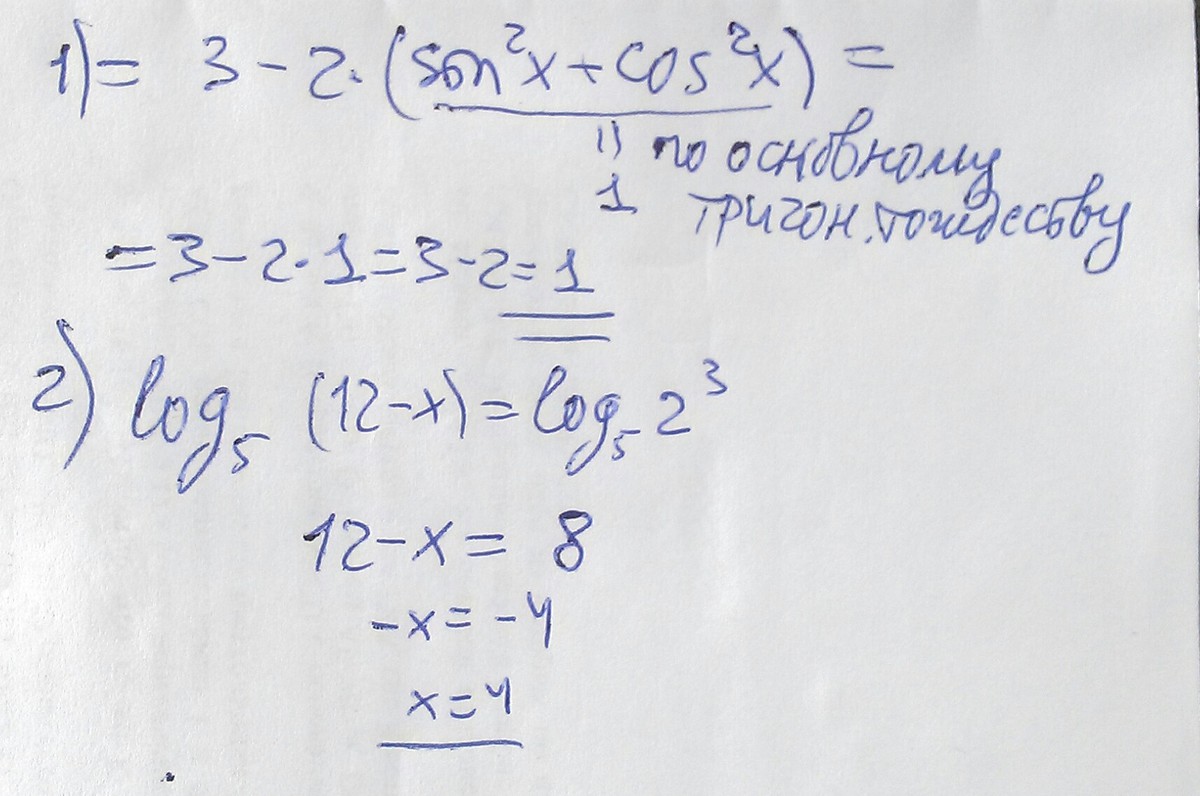 1) = 3 - 2 · (sin²x + cos²x) =
॥ по основному
1 тригон. тождеству
= 3 - 2 · 1 = 3 - 2 = 1
2) log₅ (12 - x) = log₅ 2³
12 - x = 8
-x = -4
x = 4